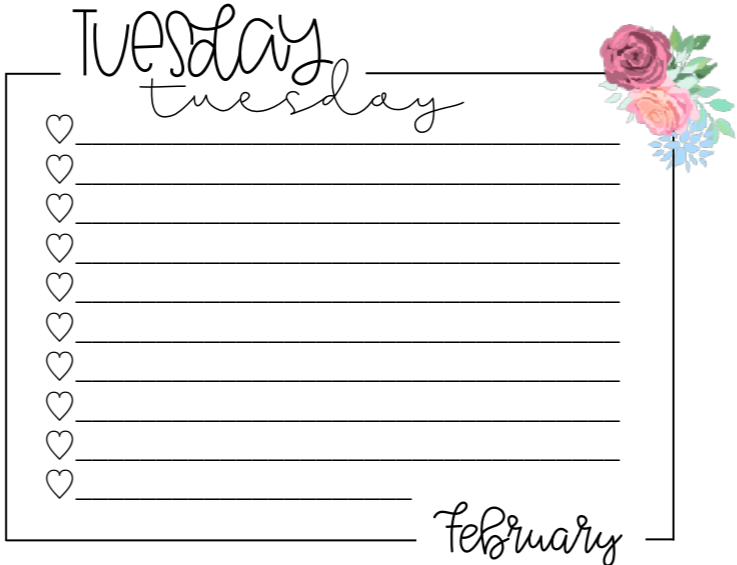 Tuesday
tuesday
February